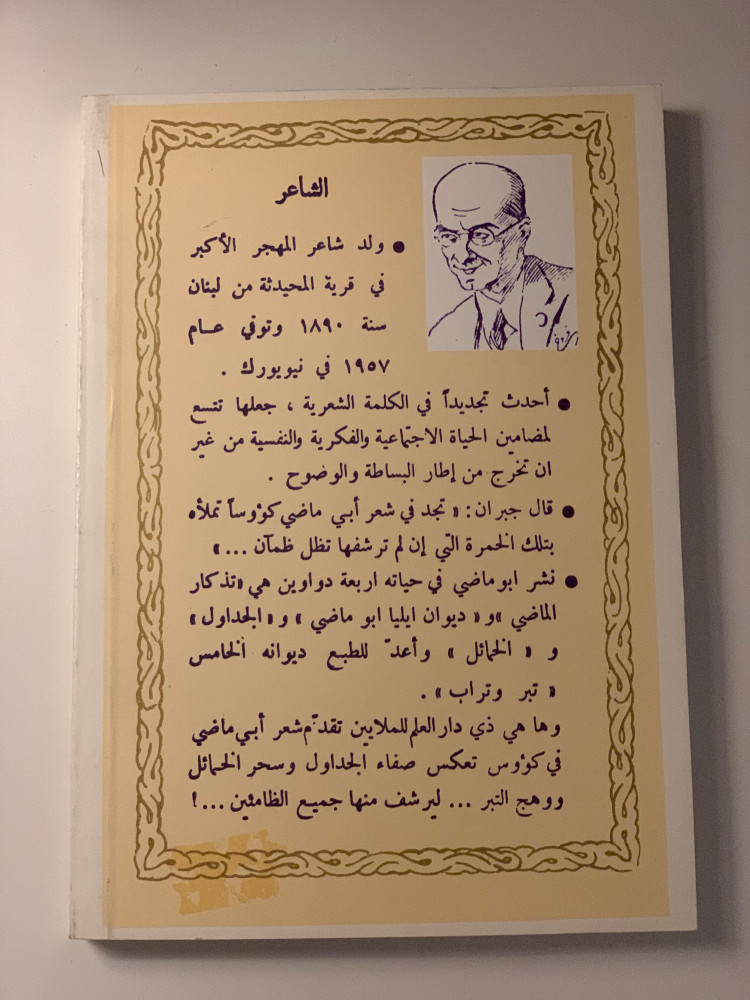 الشاعر
● ولد شاعر المهجر الأكبر
في قرية المحيدثة من لبنان
سنة ١٨٩٠ وتوفي عام
١٩٥٧ في نيويورك .
● أحدث تجديداً في الكلمة الشعرية ، جعلها تتسع
لمضامين الحياة الاجتماعية والفكرية والنفسية من غير
ان تخرج من إطار البساطة والوضوح .
● قال جبران : « تجد في شعر أبي ماضي كؤوساً تملأه
بتلك الخمرة التي إن لم ترشفها تظل ظمآن ... »
● نشر ابو ماضي في حياته اربعة دواوين هي « تذكار
الماضي » و « ديوان ايليا ابو ماضي » و « الجداول »
و « الخمائل » وأعدّ للطبع ديوانه الخامس
« تبر وتراب » .
وها هي ذي دار العلم للملايين تقدّم شعر أبي ماضي
في كؤوس تعكس صفاء الجداول وسحر الخمائل
ووهج التبر ... ليرشف منها جميع الظامئين ... !